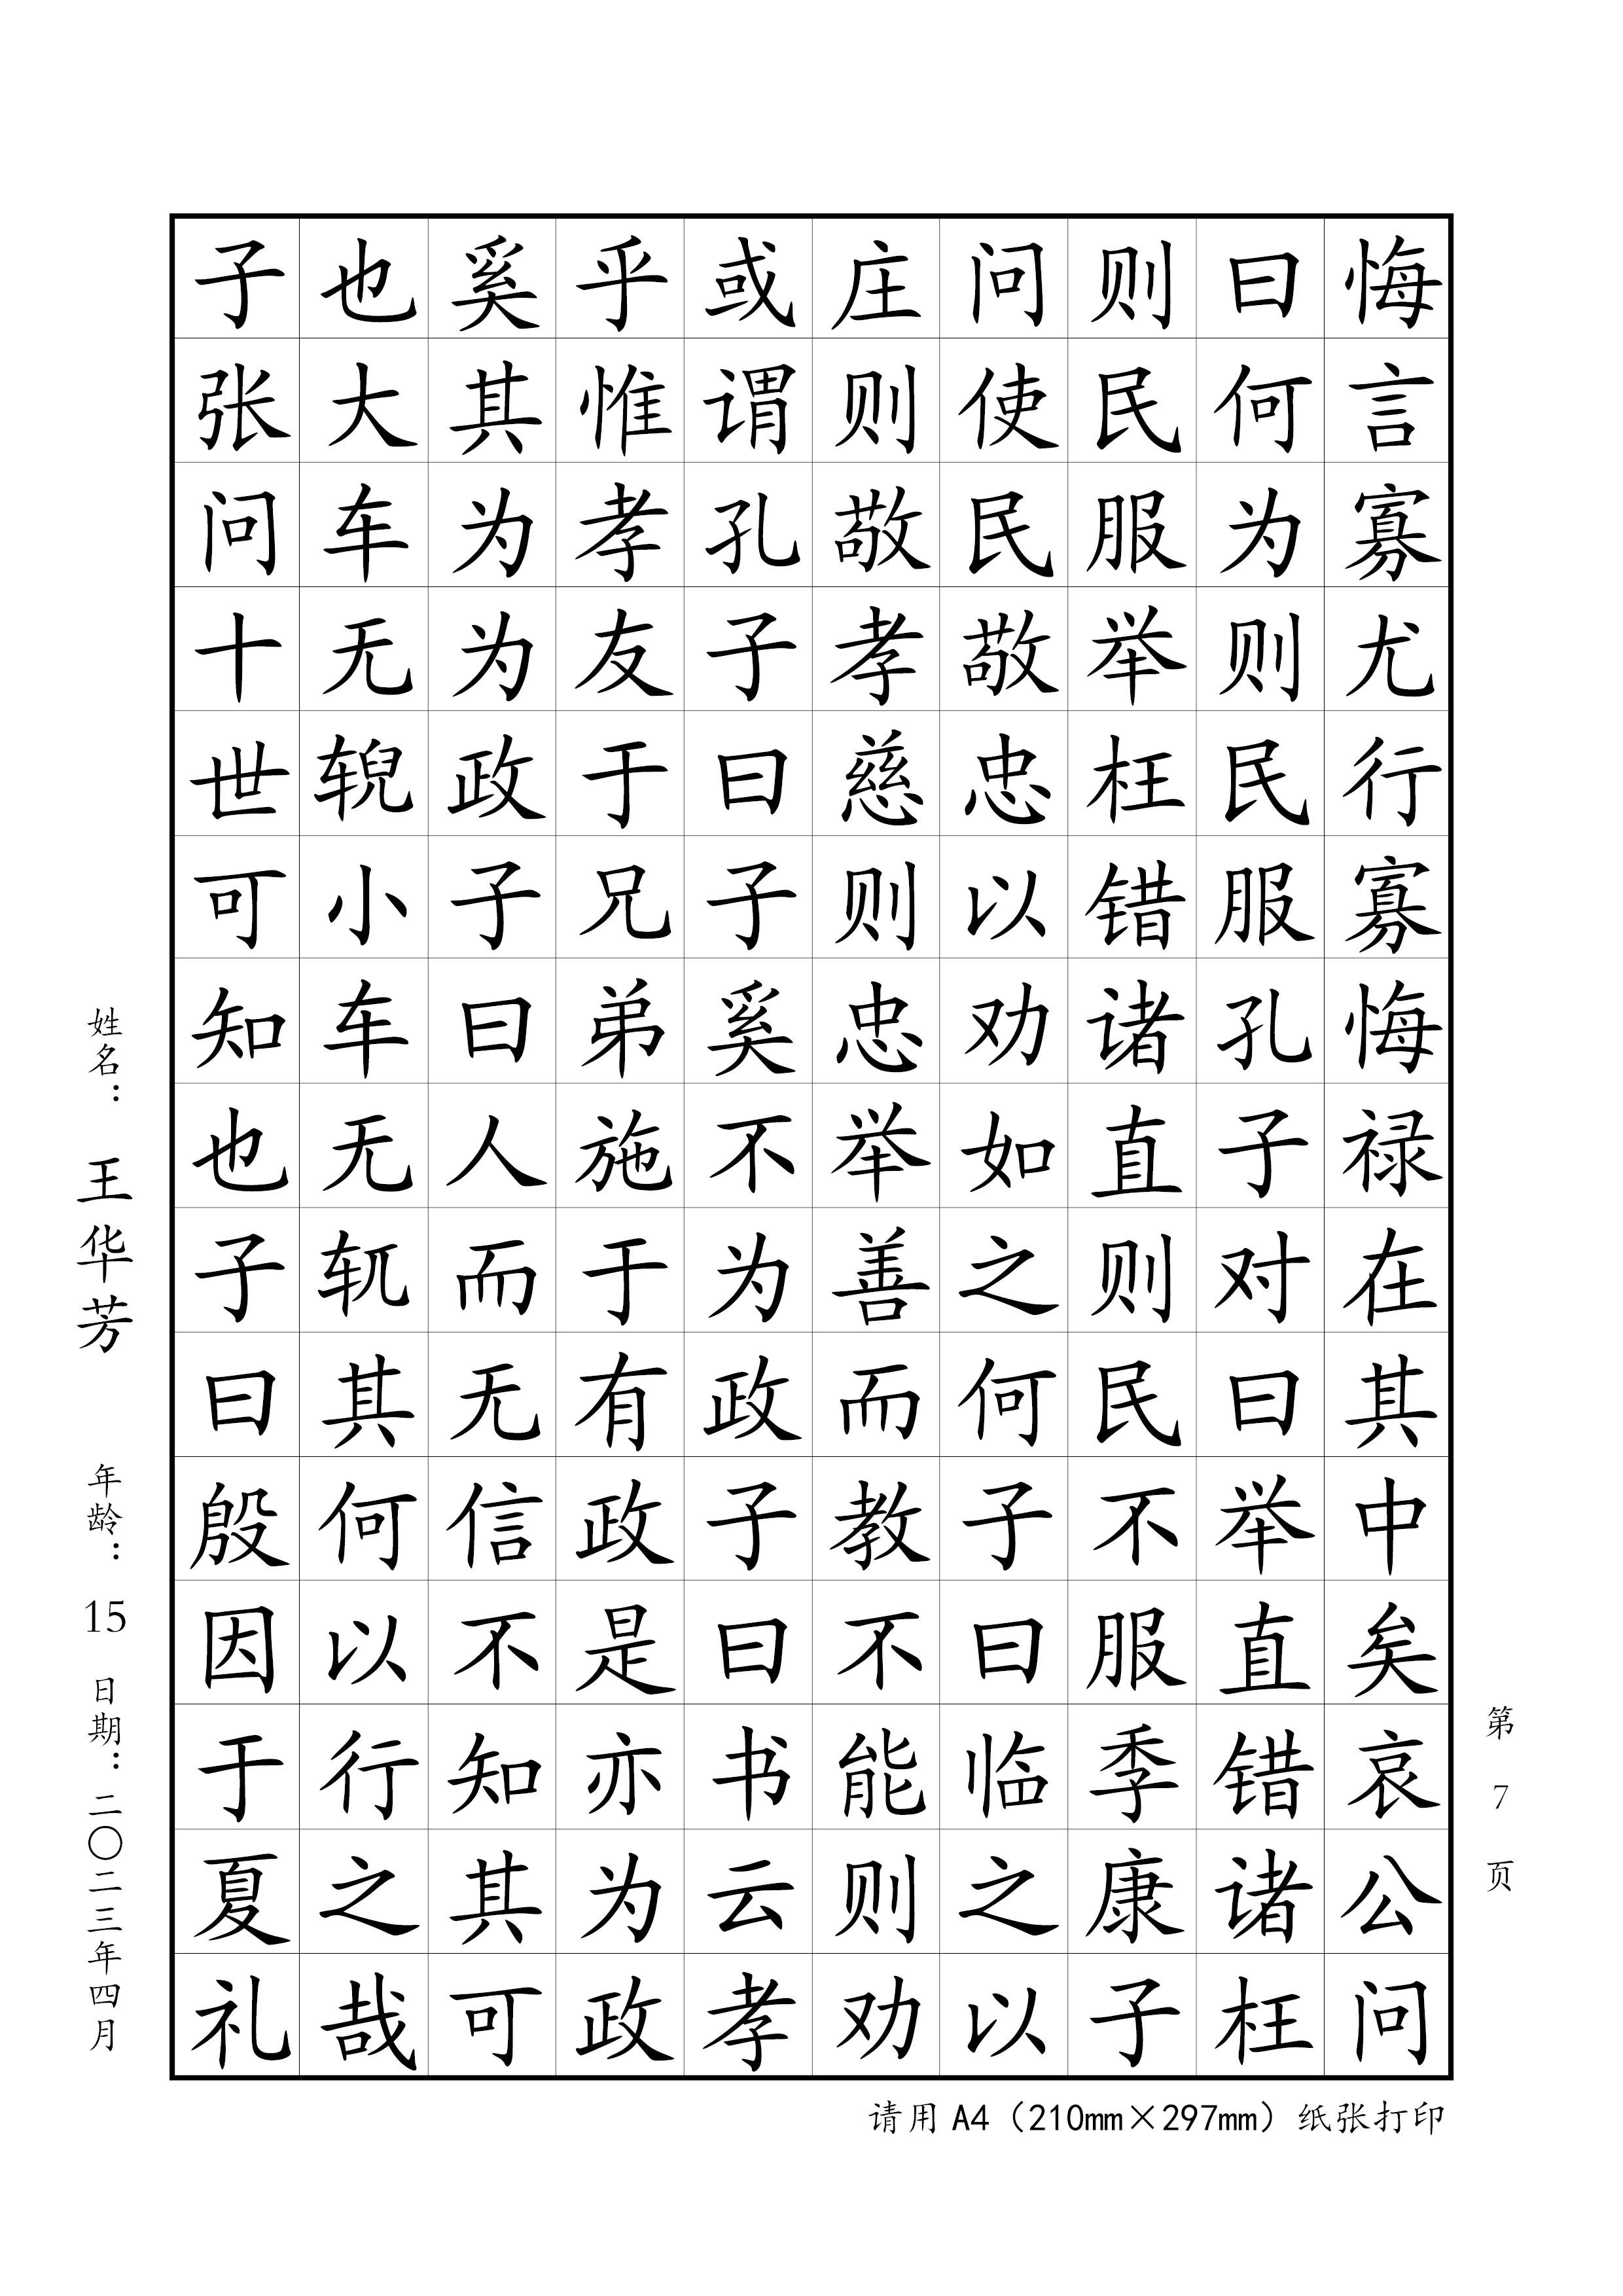 悔言寡尤行寡悔禄在其中矣哀公问
曰何为则民服孔子对曰举直错诸枉
则民服举枉错诸直则民不服季康子
问使民敬忠以劝如之何子曰临之以
庄则敬孝慈则忠举善而教不能则劝
或谓孔子曰子奚不为政子曰书云孝
乎惟孝友于兄弟施于有政是亦为政
奚其为为政子曰人而无信不知其可
也大车无輗小车无軏其何以行之哉
子张问十世可知也子曰殷因于夏礼
第 7 页
姓名： 王华芳 年龄： 15 日期：二〇二三年四月
请用 A4（210mm×297mm）纸张打印